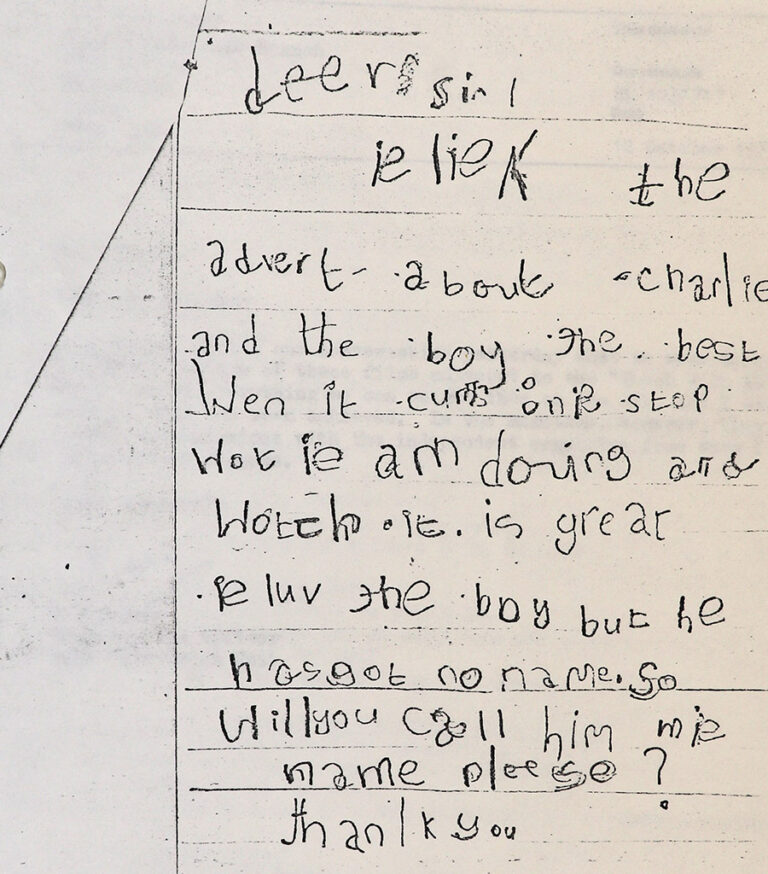 deer sir
ie liek the
advert about charlie
and the boy the best
Wen it cums on ie stop
Wot ie am doing and
Wotch it. is great
ie luv the boy but he
has got no name. So
Will you call him mie
name pleese?
thank you